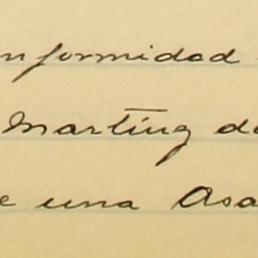 nformidad
Marting de
e una Asa